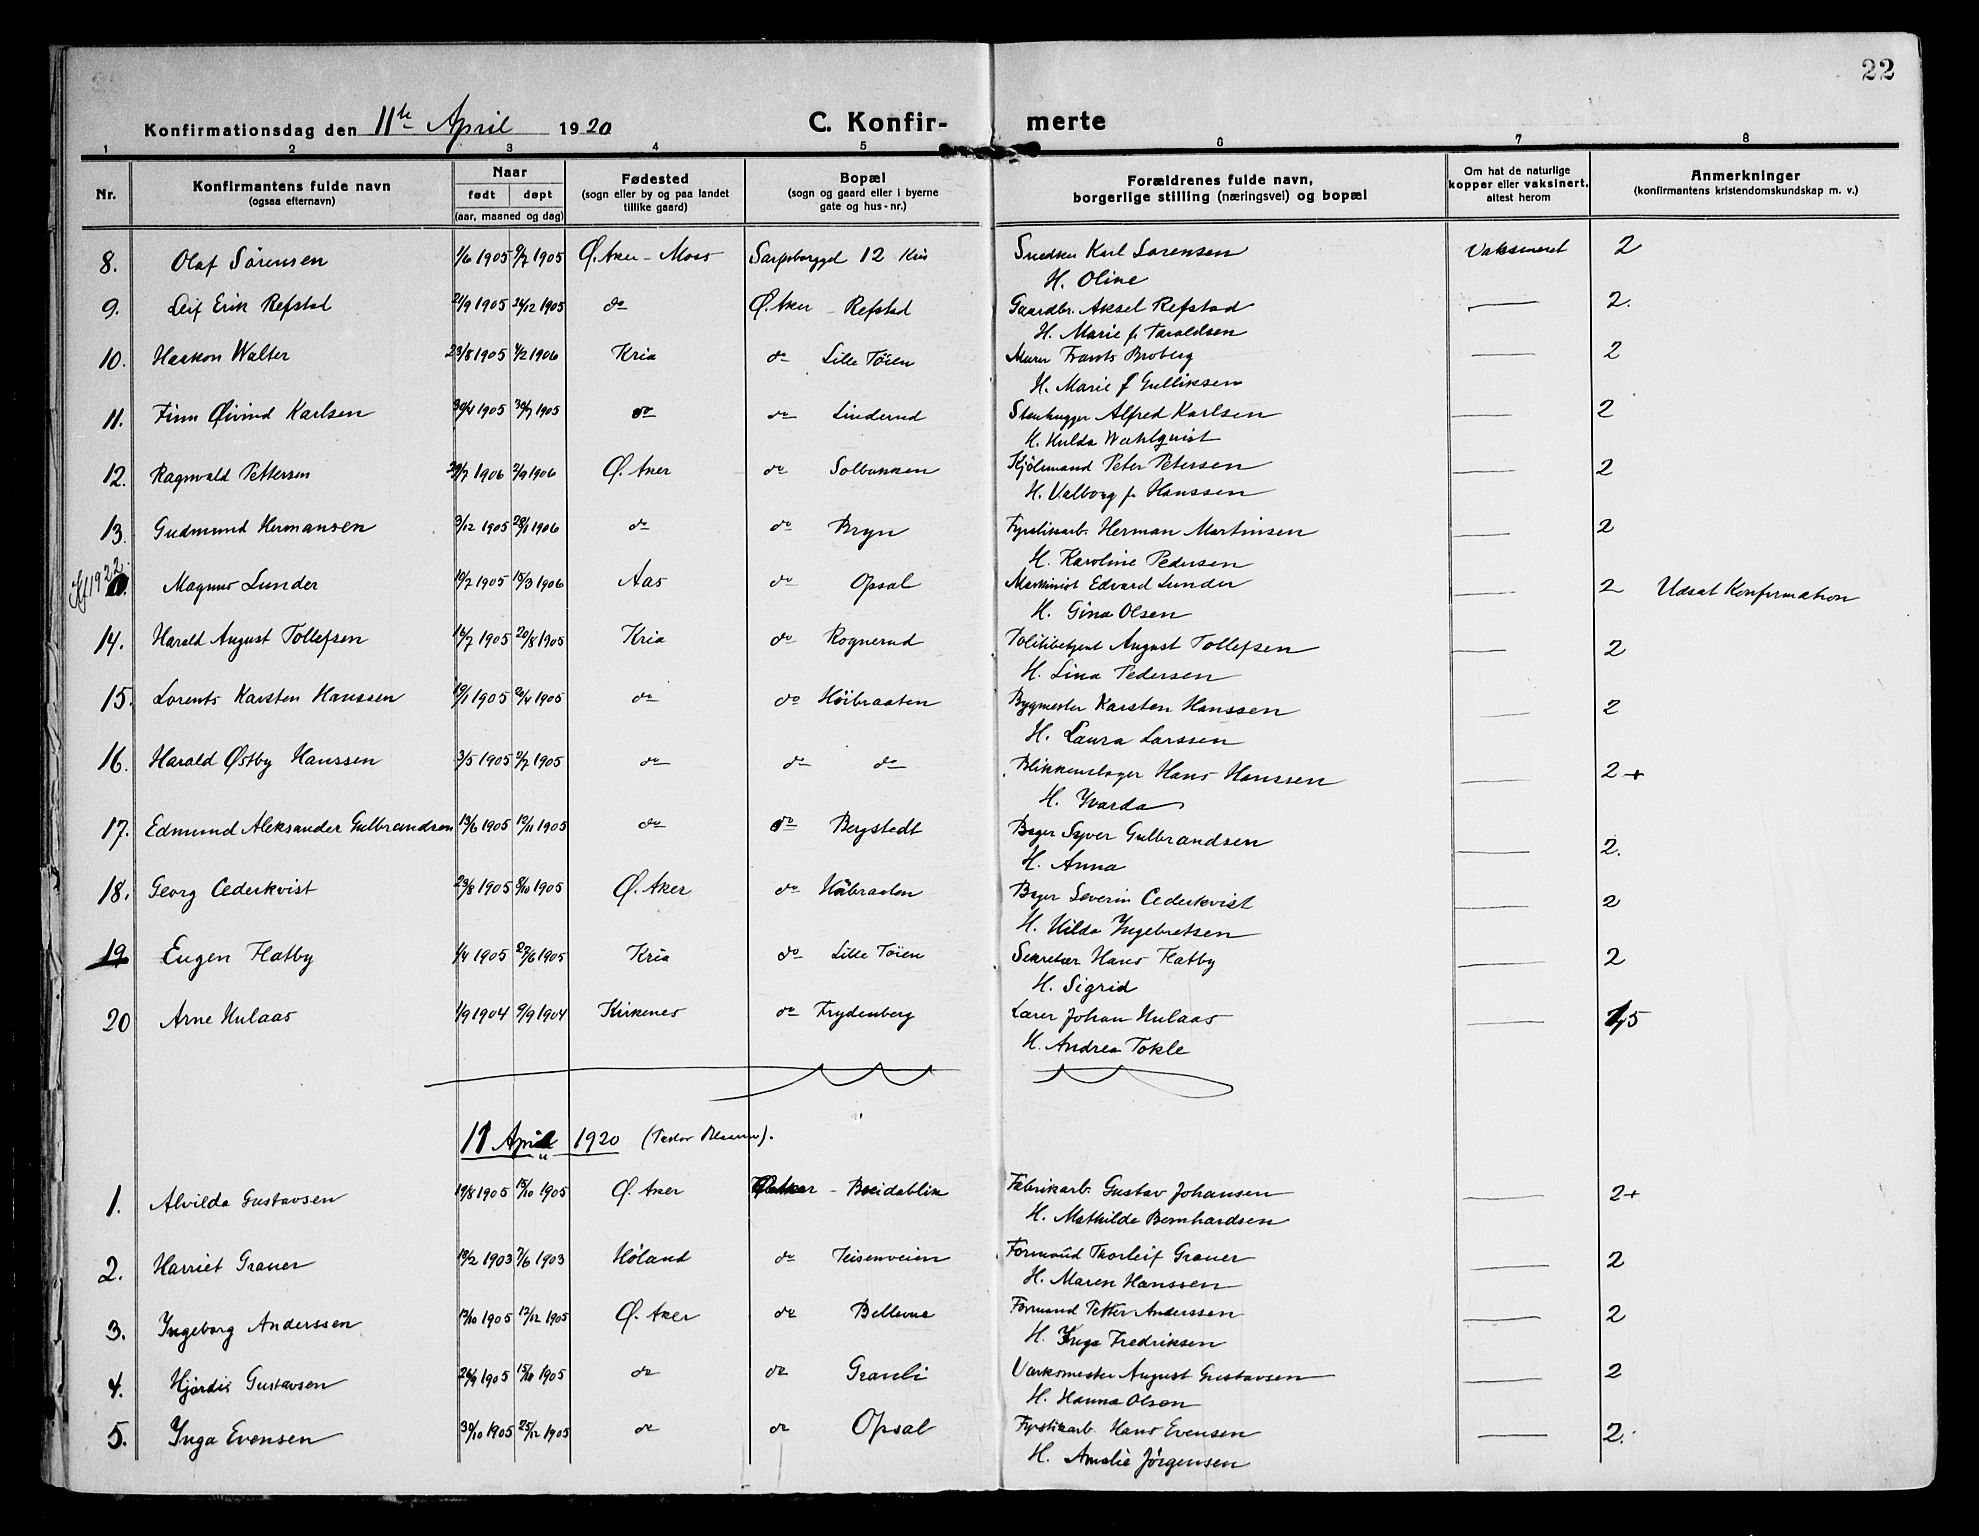 22
Konfirmationsdag den 11te April 1920 C. Konfir- merte
1 2 3 4 5 6 7 8
Nr. Konfirmantens fulde navn (ogsaa efternavn) Naar født døpt (aar, maaned og dag) Fødested (sogn eller by og paa landet tillike gaard) Bopæl (sogn og gaard eller i byerne gate og hus-nr.) Forældrenes fulde navn, borgerlige stilling (næringsvei) og bopæl Om hat de naturlige kopper eller vaksinert, attest herom Anmerkninger (konfirmantens kristendomskundskap m. v.)
8. Olaf Sørensen 1/6 1905 9/7 1905 Ø. Aker - Moss Sarpsborggd 12 Kria Snedker Karl Sørensen Vaksineret 2
H. Oline
9. Leif Erik Refstad 21/9 1905 24/12 1905 do Ø. Aker - Refstad Gaardbr. Aksel Refstad — 2.
H. Marie f. Taraldsen
10. Haakon Walter 23/8 1905 4/2 1906 Kria do Lille Tøien Murer Frants Broberg — 2
H. Marie f Gulliksen
11. Finn Øivind Karlsen 30/4 1905 30/7 1905 do do Linderud Stenhugger Alfred Karlsen — 2
H. Hulda Wahlquist
12. Ragnvald Pettersen 29/7 1906 2/9 1906 Ø. Aker do Solbakken Kjølemand Peter Petersen — 2
H. Valborg f. Hanssen
13. Gudmund Hermansen 3/12 1905 28/1 1906 do do Bryn Fyrstikarb. Herman Martinsen — 2
H. Karoline Pedersen
1922. Magnus Lunder 10/7 1905 18/3 1906 Aas do Opsal Maskinist Edvard Lunder — 2 Udsat Konfirmation
H. Gina Olsen
14. Harald August Tollefsen 16/7 1905 20/8 1905 Kria do Rognerud Politibetjent August Tollefsen — 2
H. Lina Pedersen
15. Lorents Karsten Hanssen 19/1 1905 20/4 1905 do do Høibraaten Bygmester Karsten Hanssen — 2
H. Laura Larssen
16. Harald Østby Hanssen 3/5 1905 2/7 1905 do do do Blikkenslager Hans Hanssen — 2+
H. Yvarda
17. Edmund Aleksander Gulbrandsen 13/6 1905 12/11 1905 do do Bergstedt Bager Syver Gulbrandsen — 2.
H. Anna
18. Georg Cederkvist 23/8 1905 8/10 1905 Ø. Aker do Høibraaten Bager Severin Cederkvist — 2
H. Hilda Yngebretsen
19 Eugen Flatby 1/4 1905 27/6 1905 Kria do Lille Tøien Sekretær Hans Flatby — 2
H. Sigrid
20 Arne Hulaas 1/9 1904 9/9 1904 Kirkenes do Frydenberg Lærer Johan Hulaas — 1,5
H. Andrea Tokle
11 April 1920
1. Alvilda Gustavsen 19/8 1905 15/10 1905 Ø. Aker Ø. Aker - Breidablik Fabrikarb. Gustav Johansen — 2+
H. Mathilde Bernhardsen
2. Harriet Grauer 13/2 1903 7/6 1903 Høland do Teisenveien Formand Thorleif Grauer — 2
H. Maren Hanssen
3. Yngeborg Anderssen 12/10 1905 17/12 1905 Ø. Aker do Bellevue Formand Petter Anderssen — 2
H. Ynga Fredriksen
4. Hjørdis Gustavsen 26/9 1905 15/10 1905 do do Granli Værksmester August Gustavsen — 2
H. Hanna Olsen
5. Ynga Evensen 30/10 1905 25/12 1905 do do Opsal Fyrstikarb. Hans Evensen — 2.
H. Amalie Jørgensen